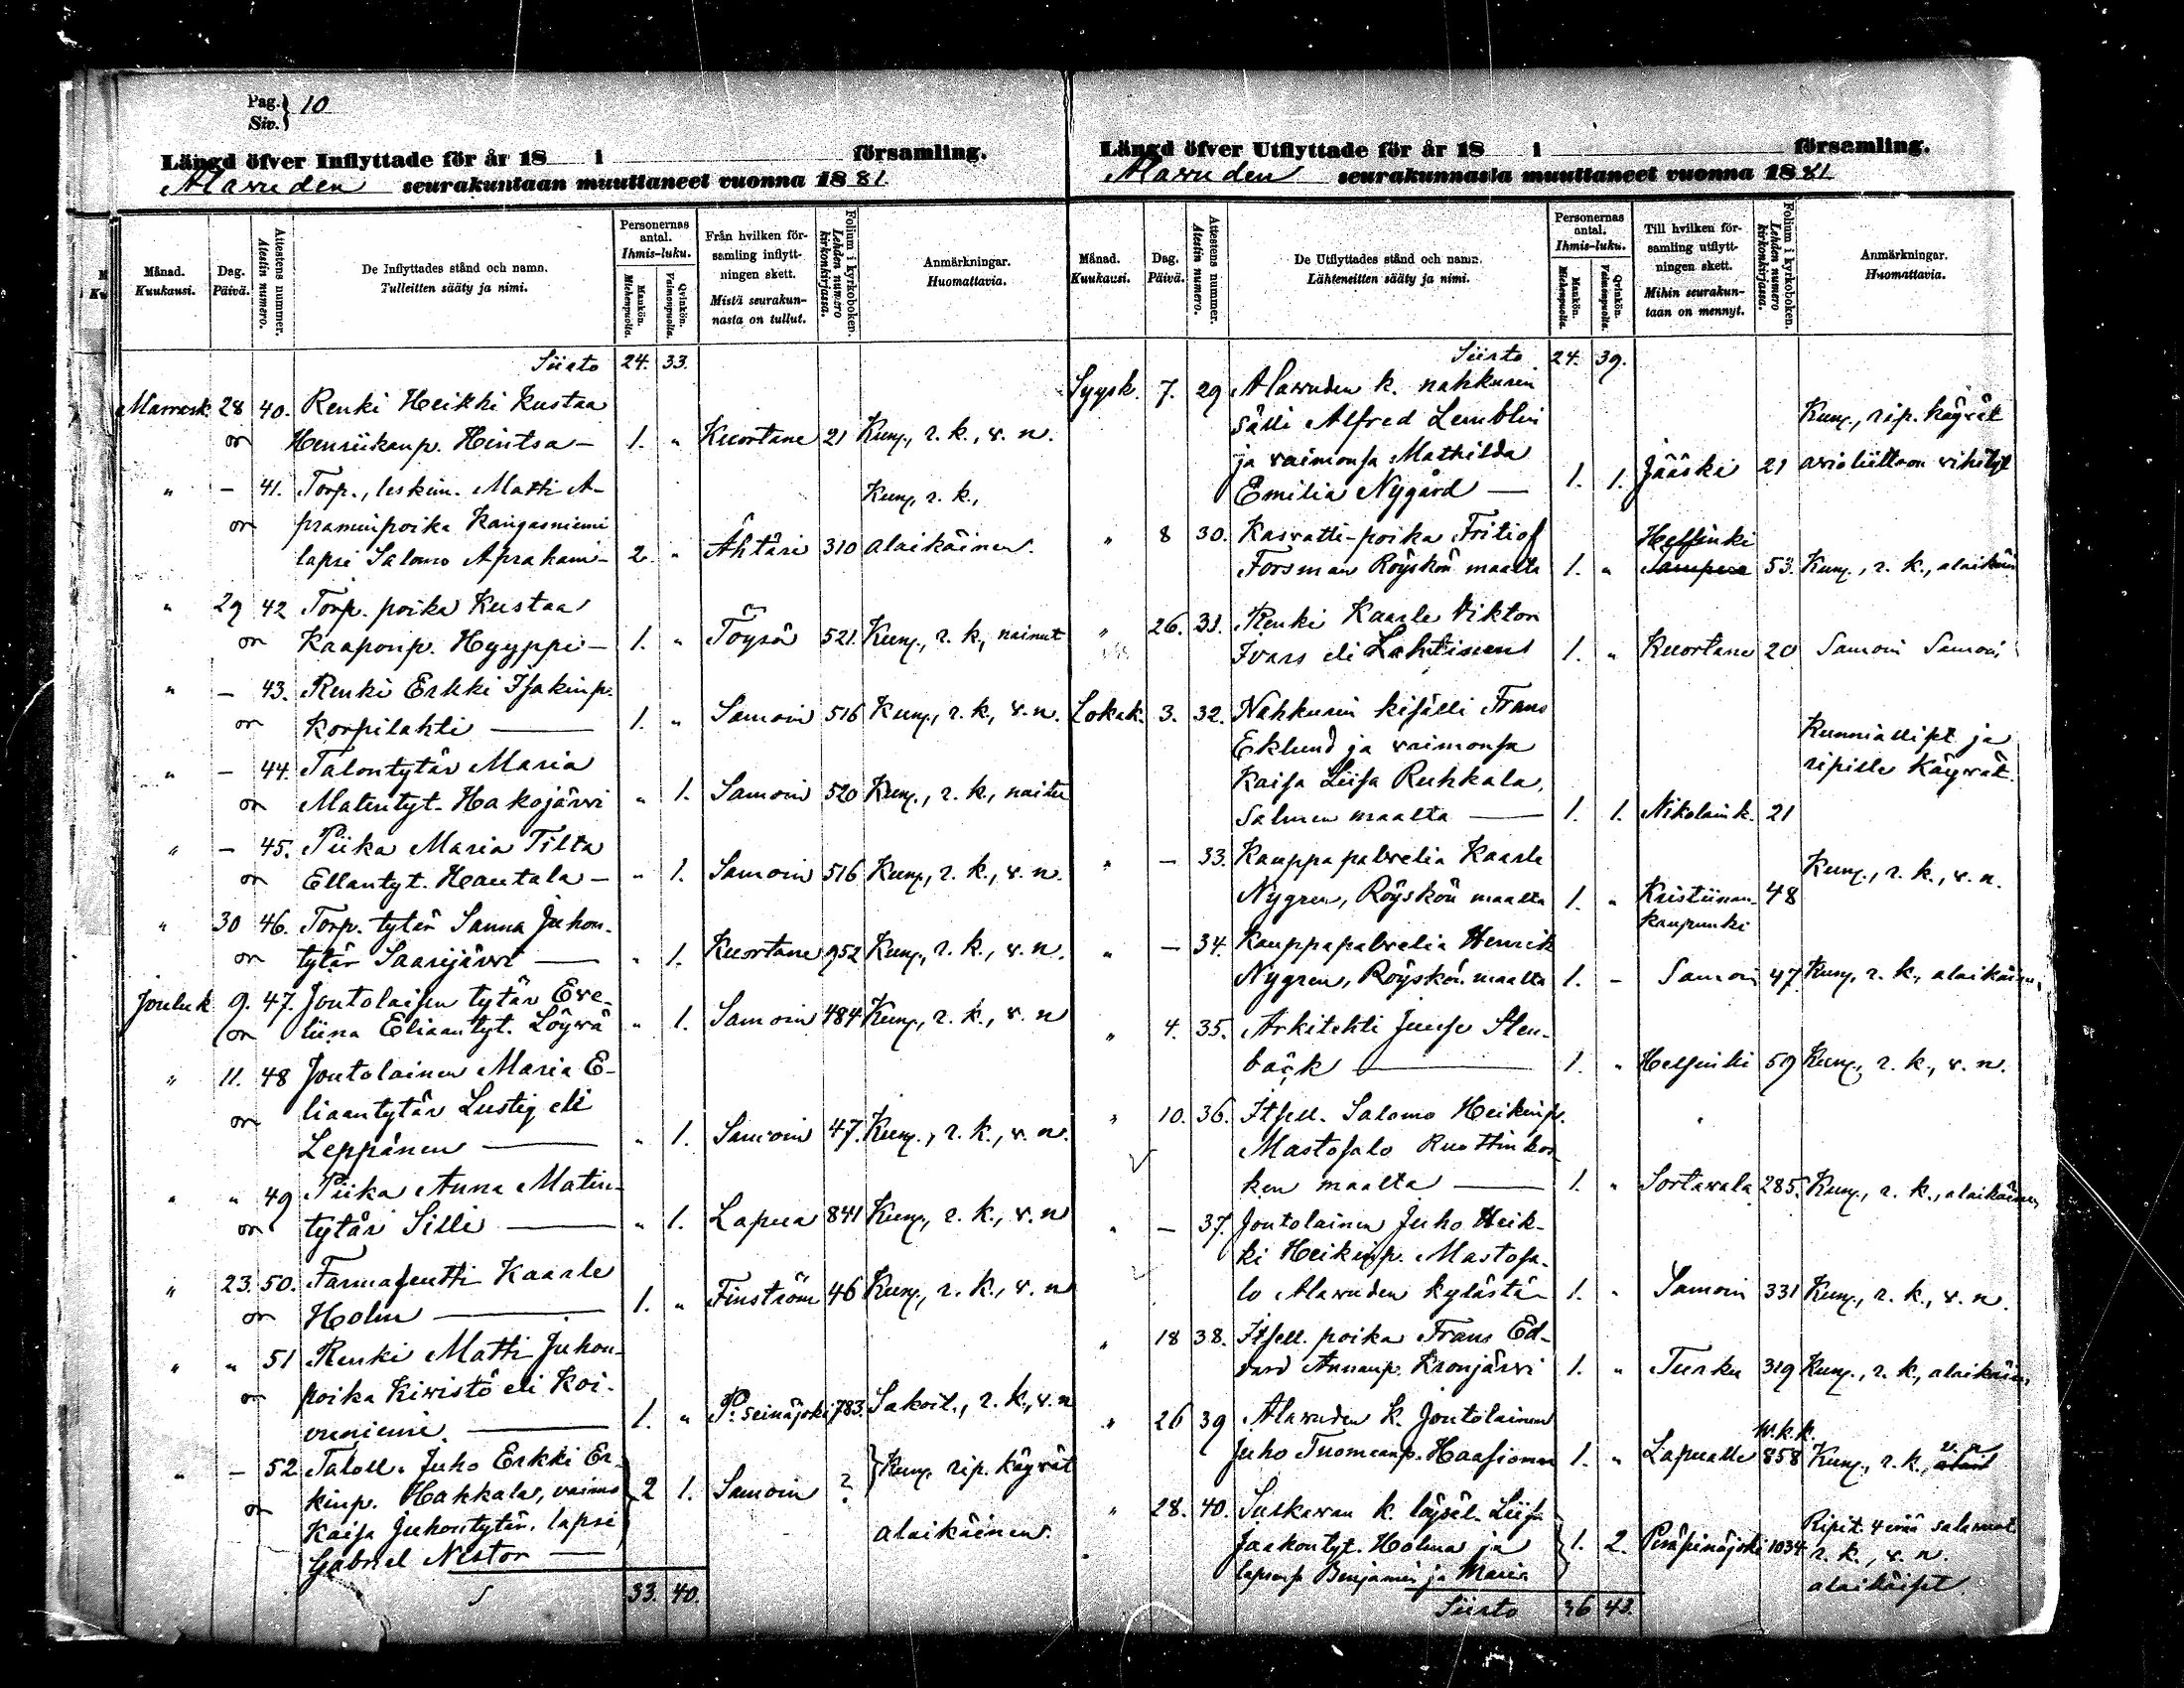 Pag. } 10
Siv. }
Längd öfver Inflyttade för år 18 i församling.
Alavuden seurakuntaan muuttaneet vuonna 1881.
Månad. Kuukausi.
Dag. Päivä.
Attestens nummer. Atestin numero.
De Inflyttades stånd och namn.
Tulleitten sääty ja nimi.
Personernas antal. Ihmis-luku.
Mankön. Miehenpuolta.
Qvinkön. Vaimonpuolta.
Från hvilken församling inflyttningen skett.
Mistä seurakunnasta on tullut.
Folium i kyrkoboken. Lehden numero kirkonkirjassa.
Anmärkningar.
Huomattavia.
Siirto 24. 33.
Marrask. 28 40. Renki Heikki Kustaa
on Henriikanp. Hintsa – 1. " Kuortane 21 Kunn., r. k., v. n.
" – 41. Torp., leskim. Matti A- Kunn, r. k.,
on praminpoika Kangasniemi
lapsi Salomo Aprahami- 2. " Ähtäri 310 alaikäinen.
" 29 42 Torp. poika Kustaa
on Kaaponp. Hyyppi – 1. " Töysä 521. Kunn., r. k., nainut
" – 43. Renki Erkki Isakinp.
on Korpilahti — 1. " Samoin 516 Kunn., r. k., v. n.
" – 44. Talontytär Maria
on Matintyt. Hakojärvi " 1. Samoin 520 Kunn., r. k., naitu
" – 45. Piika Maria Tilta
on Ellantyt. Hautala – " 1. Samoin 516 Kunn., r. k., v. n.
" 30 46. Torp. tytär Sanna Juhon-
on tytär Saarijärvi — " 1. Kuortane 952 Kunn., r. k., v. n.
Jouluk 9. 47. Joutolaisen tytär Eve-
on liina Eliaantyt. Löyvä " 1. Samoin 484 Kunn., r. k., v. n
" 11. 48 Joutolainen Maria E-
on liaantytär Lustig eli
Leppänen — " 1. Samoin 47. Kunn., r. k., v. n.
" " 49 Piika Anna Matin-
on tytär Silli — " 1. Lapua 841 Kunn, r. k., v. n
" 23. 50. Farmaseutti Kaarle
on Holm — 1. " Finström 46 Kunn., r. k., v. n
" " 51 Renki Matti Juhon-
on poika Kivistö eli Koi-
vuniemi. — 1. " P. seinäjoki 783. Sakoit., r. k., v. n
" – 52 Taloll. Juho Erkki Er-
on kinp. Hakkala, vaimo 2 1. Samoin ? Kunn. rip. käyvät
Kaisa Juhontytär, lapsi alaikäinen.
Gabriel Nestor —
S 33. 40.
Längd öfver Utflyttade för år 18 i församling.
Alavuden seurakunnasta muuttaneet vuonna 1881
Månad. Kuukausi.
Dag. Päivä.
Attestens nummer. Atestin numero.
De Utflyttades stånd och namn.
Lähteneitten sääty ja nimi.
Personernas antal. Ihmis-luku.
Mankön. Miehenpuolta.
Qvinkön. Vaimonpuolta.
Till hvilken församling utflyttningen skett.
Mihin seurakuntaan on mennyt.
Folium i kyrkoboken. Lehden numero kirkonkirjassa.
Anmärkningar.
Huomattavia.
Siirto 24. 39.
Syysk. 7. 29 Alavuden k. nahkurin
sälli Alfred Lemblin Kunn., rip. käyvät
ja vaimonsa Mathilda
Emilia Nygård — 1. 1. Jääski 21 avioliittoon vihityt
" 8 30. Kasvatti-poika Fritiof Helsinki
Forsman Röyskön maalta 1. " Tampere 53. Kunn., r. k., alaikäin
" 26. 31. Renki Kaarle Viktor
Ivars eli Lahtinen 1. " Kuortane 20 Samoin Samoin
Lokak. 3. 32. Nahkurin kisälli Frans
Eklund ja vaimonsa Kunnialliset ja
Kaisa Liisa Ruhkala, ripillä käyvät.
Salmen maalta — 1. 1. Nikolaink. 21
" – 33. Kauppapalvelia Kaarle Kunn., r. k., v. n.
Nygren, Röyskön maalta 1. " Kristiinan- 48
kaupunki
" – 34. Kauppapalvelia Henrik
Nygren, Röyskön maalta 1. – Samoin 47. Kunn, r. k., alaikäinen
" 4. 35. Arkitehti Juuse Sten-
bäck — 1. " Helsinki 59 Kunn., r. k., v. n.
" 10. 36. Itsell. Salomo Heikinp.
Mastosalo Ruottinkos-
ken maalta — 1. " Sortavala 285. Kunn., r. k., alaikäinen
" – 37. Joutolainen Juho Heik-
ki Heikinp. Mastosa-
lo Alavuden kylästä 1. " Samoin 331 Kunn., r. k., v. n.
" 18 38. Itsell. poika Frans Ed-
vard Annanp. Kronjärvi 1. " Turku 319 Kunn., r. k., alaikäin
" 26 39 Alavuden k. Joutolainen m.k.k.
Juho Tuomaanp. Haasiomaa 1. " Lapualle 858 Kunn., r. k., v. n
" 28. 40. Sulkavan k. löysäl. Liisa
Jaakontyt. Holma ja 1. 2. Peräseinäjoki 1034 r. k., v. n.
lapsensa Benjamin ja Maria alaikäiset
Siirto 36 43.